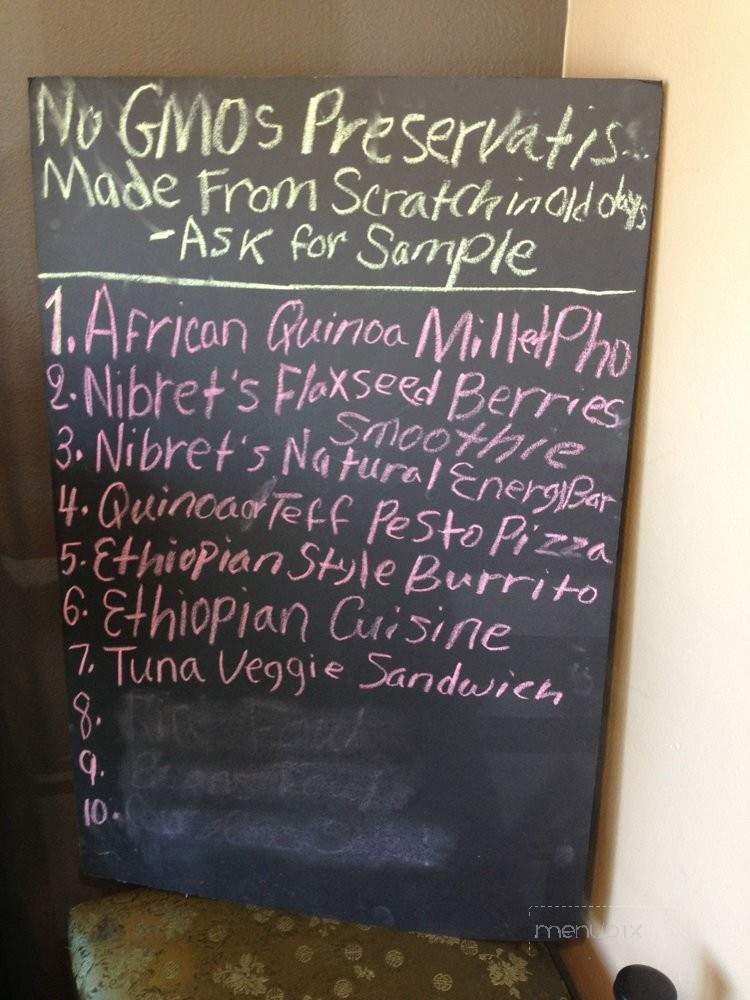 No GMOs Preservatis...
Made From Scratch in old days
-ASK for Sample
1. African Quinoa Millet Pho
2. Nibret's Flaxseed Berries
Smoothie
3. Nibret's Natural Energy Bar
4. Quinoa or Teff Pesto Pizza
5. Ethiopian Style Burrito
6. Ethiopian Cuisine
7. Tuna Veggie Sandwich
8.
9.
10.
menupix